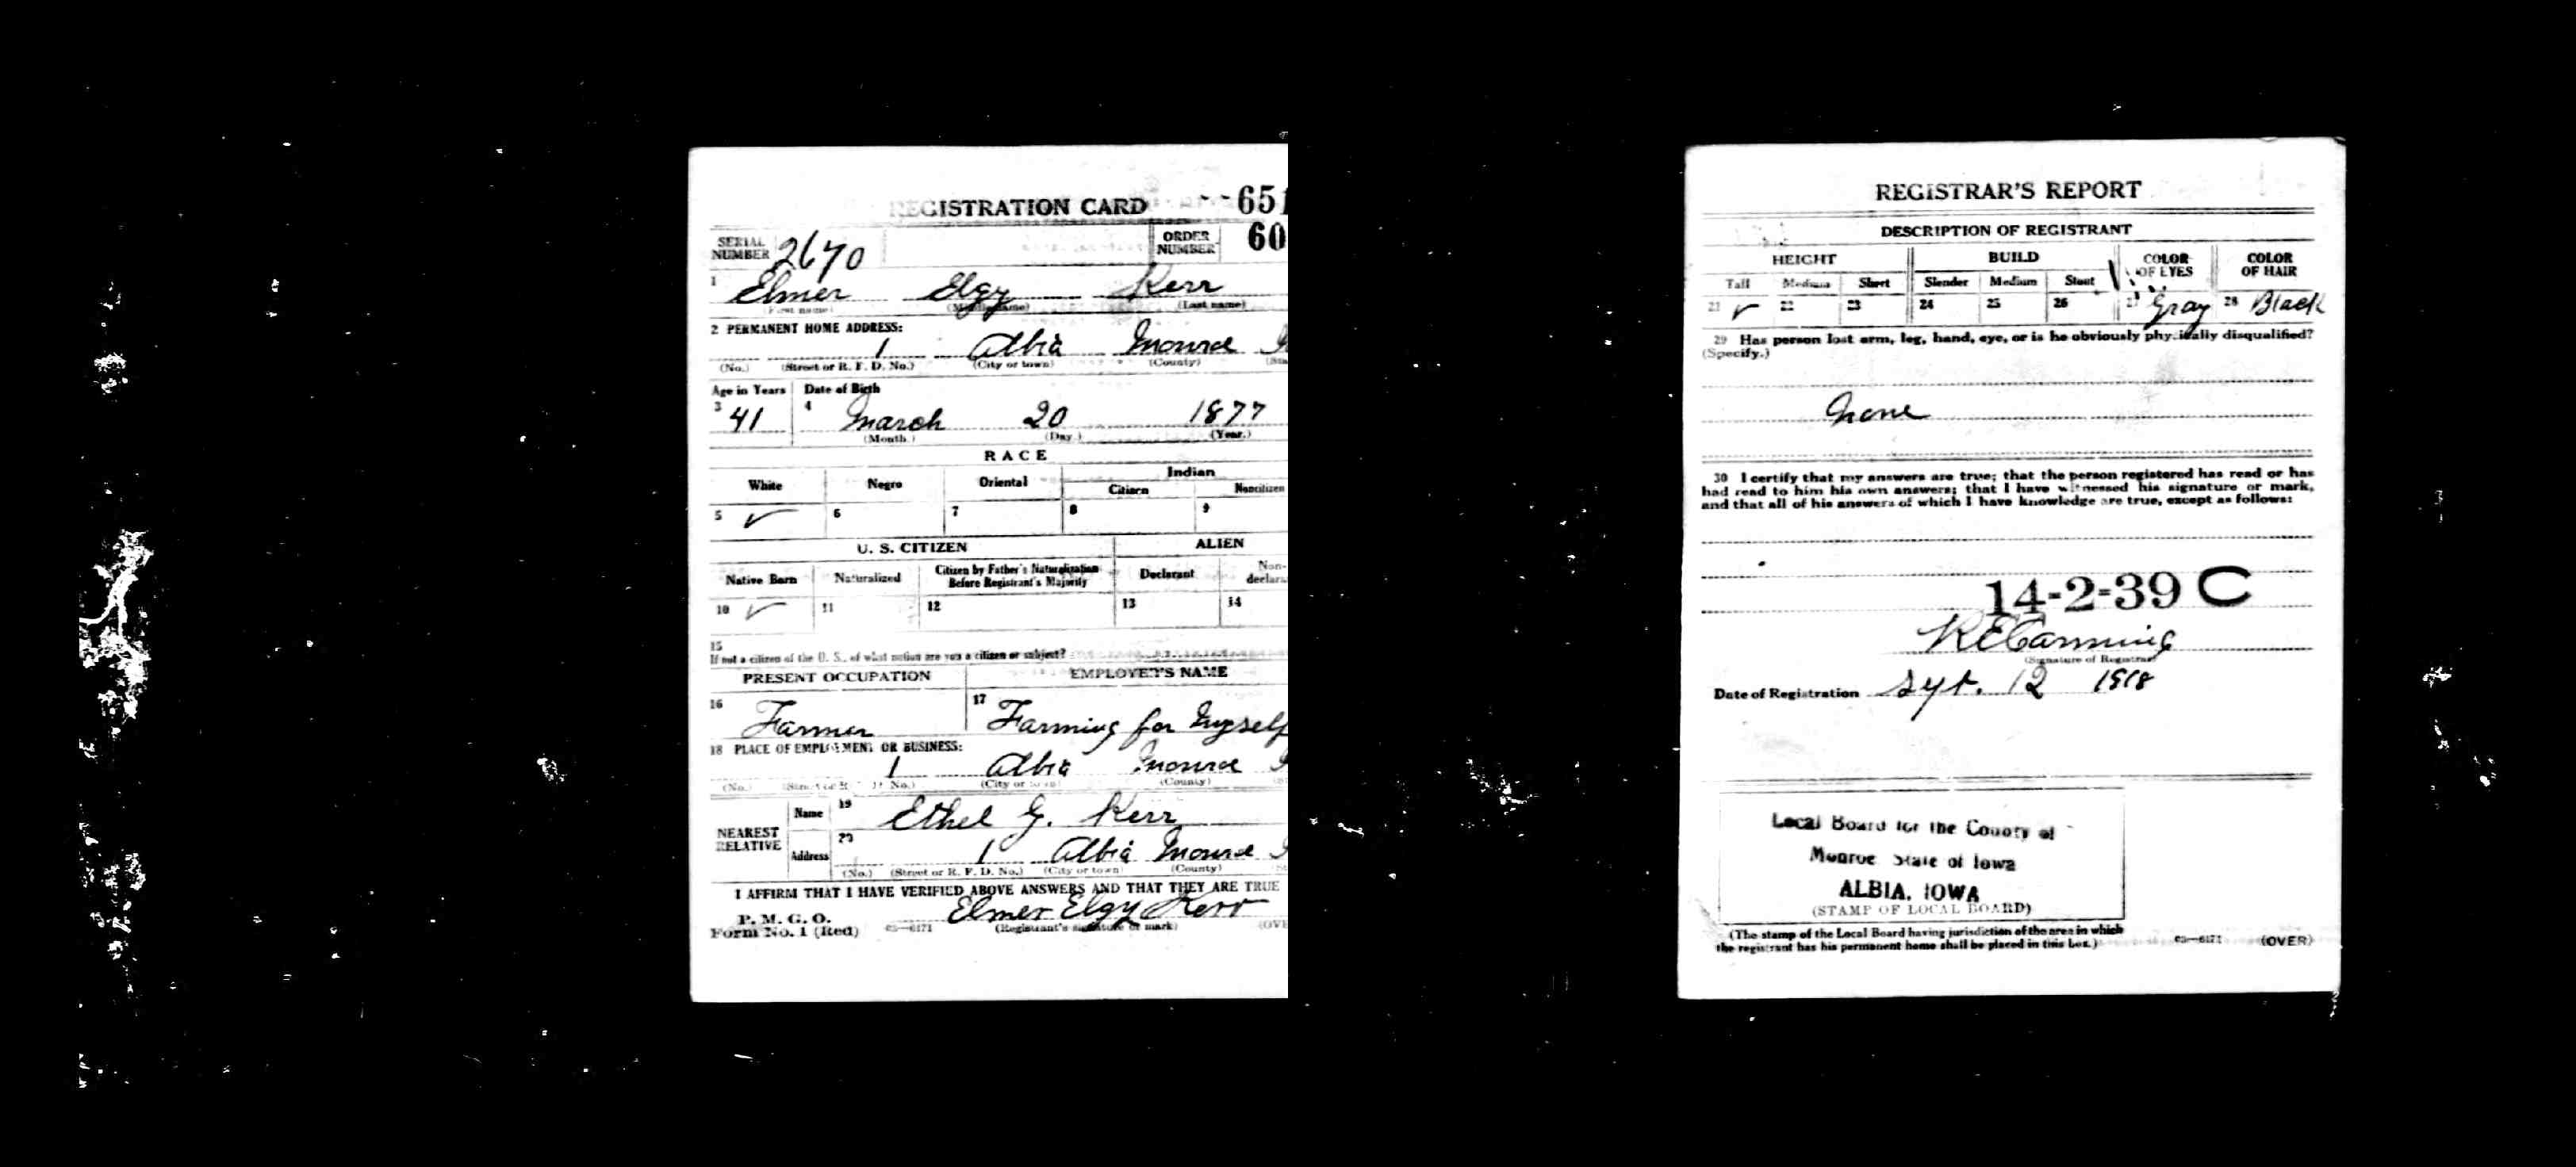 REGISTRATION CARD 651
SERIAL NUMBER 2670 ORDER NUMBER 60
1 Elmer Elgy Kerr
(First name) (Middle name) (Last name)
2 PERMANENT HOME ADDRESS:
1 Albia Monroe
(No.) (Street or R. F. D. No.) (City or town) (County)
Age in Years Date of Birth
3 41 4 March 20 1877
(Month.) (Day.) (Year.)
RACE
White Negro Oriental Indian
Citizen Noncitizen
5 ✓ 6 7 8 9
U. S. CITIZEN ALIEN
Native Born Naturalized Citizen by Father's Naturalization Before Registrant's Majority Declarant Non-declara
10 ✓ 11 12 13 14
15
If not a citizen of the U. S., of what nation are you a citizen or subject?
PRESENT OCCUPATION EMPLOYER'S NAME
16 Farmer 17 Farming for Myself
18 PLACE OF EMPLOYMENT OR BUSINESS:
1 Albia Monroe
(No.) (Street or R. F. D. No.) (City or town) (County)
NEAREST RELATIVE
Name 19 Ethel G. Kerr
Address 20 1 Albia Monroe
(No.) (Street or R. F. D. No.) (City or town) (County)
I AFFIRM THAT I HAVE VERIFIED ABOVE ANSWERS AND THAT THEY ARE TRUE
P. M. G. O.
Form No. 1 (Red) 03—6171 Elmer Elgy Kerr
(Registrant's signature or mark) (OVE
REGISTRAR'S REPORT
DESCRIPTION OF REGISTRANT
HEIGHT BUILD COLOR OF EYES COLOR OF HAIR
Tall Medium Short Slender Medium Stout
21 ✓ 22 23 24 25 26 27 Gray 28 Black
29 Has person lost arm, leg, hand, eye, or is he obviously physically disqualified?
(Specify.)
None
30 I certify that my answers are true; that the person registered has read or has
had read to him his own answers; that I have witnessed his signature or mark,
and that all of his answers of which I have knowledge are true, except as follows:
14-2-39 C
(Signature of Registrar)
Date of Registration Sept. 12 1918
Local Board for the County of
Monroe State of Iowa
ALBIA, IOWA
(STAMP OF LOCAL BOARD)
(The stamp of the Local Board having jurisdiction of the area in which
the registrant has his permanent home shall be placed in this box.) 03—6171 (OVER)